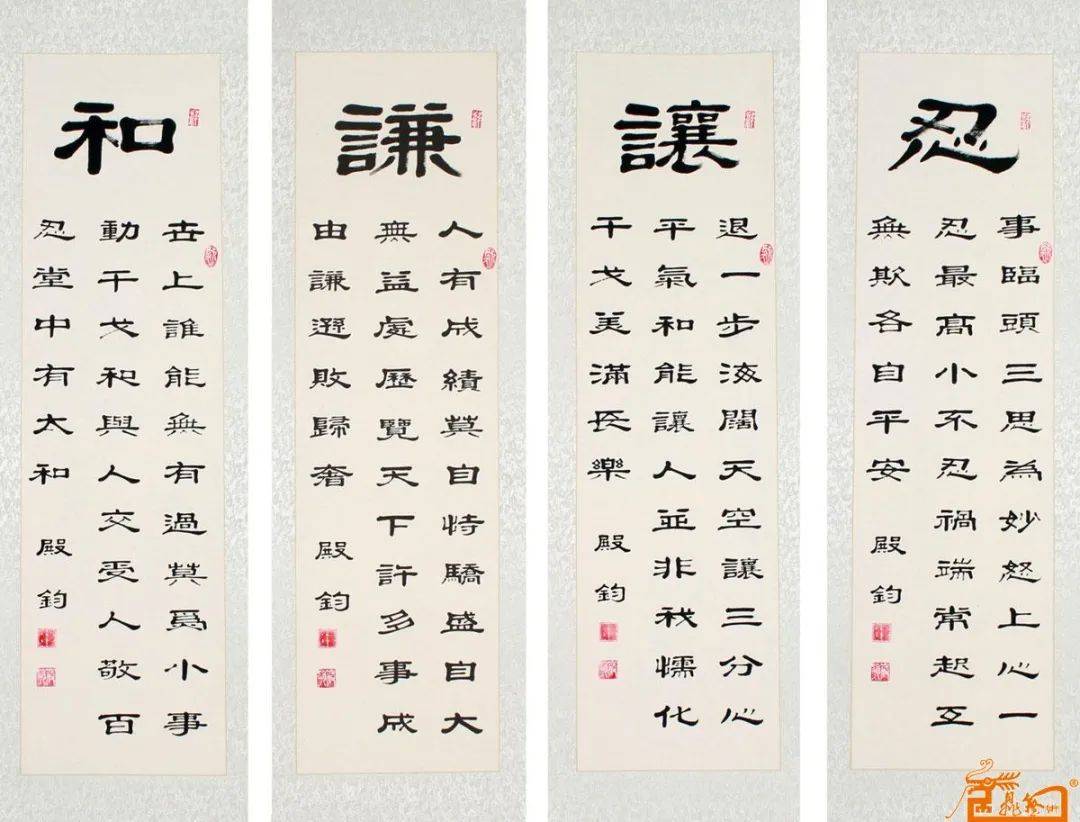 忍
事臨頭三思為妙怒上心一
忍最高小不忍禍端常起互
無欺各自平安 殿鈞
讓
退一步海闊天空讓三分心
平氣和能讓人並非我懦化
干戈美滿長樂 殿鈞
謙
人有成績莫自恃驕盛自大
無益處歷覽天下許多事成
由謙遜敗歸奢 殿鈞
和
世上誰能無有過莫爲小事
動干戈和與人交受人敬百
忍堂中有太和 殿鈞